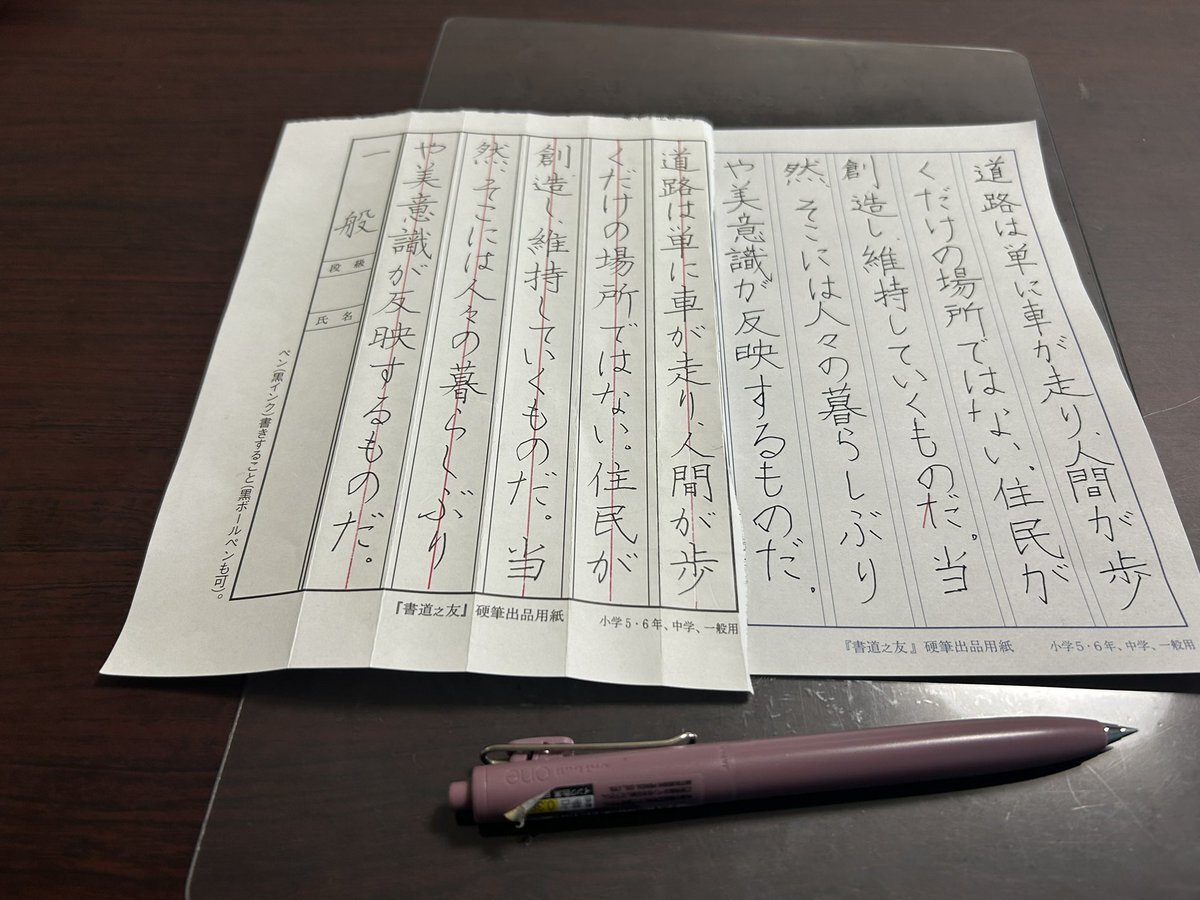 道路は単に車が走り、人間が歩
くだけの場所ではない。住民が
創造し、維持していくものだ。当
然、そこには人々の暮らしぶり
や美意識が反映するものだ。
『書道之友』硬筆出品用紙
小学5・6年、中学、一般用
道路は単に車が走り、人間が歩
くだけの場所ではない。住民が
創造し、維持していくものだ。当
然、そこには人々の暮らしぶり
や美意識が反映するものだ。
一般
段級
氏名
ペン(黒インク)書きすること(黒ボールペンも可)。
『書道之友』硬筆出品用紙
小学5・6年、中学、一般用
uni-ball one